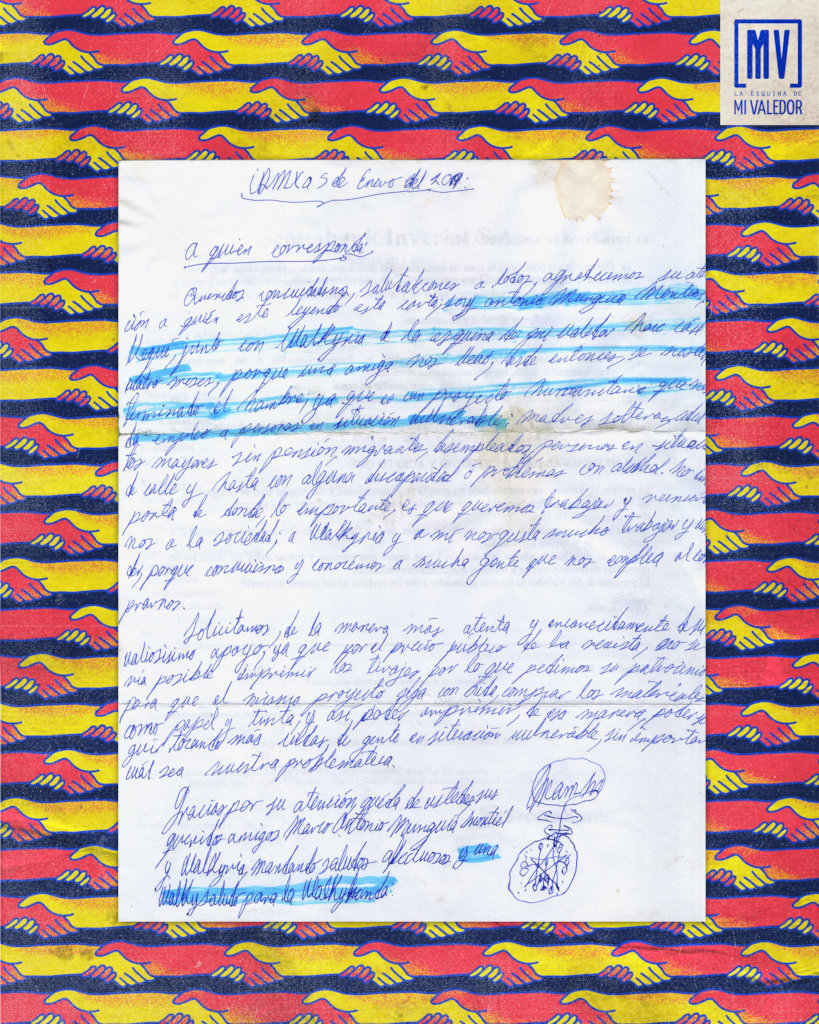 MV
LA ESQUINA DE
MI VALEDOR
CDMX a 5 de Enero del
A quien corresponda:
Queridos conciudadanos, salutaciones a todos, agradecemos su aten
ción a quién este leyendo esta carta, soy antonio Munguia Montiel
llegué, junto con Walkyria a la esquina de mi valedor hace casi
cuatro meses, porque una amiga nos llevó, desde entonces, se nos
terminado el hambre; ya que es un proyecto humanitario que nos
da empleo a personas en situación vulnerable; madres solteras, adul
tos mayores sin pensión, migrantes, desempleados, personas en situación
de calle y hasta con alguna discapacidad ó problemas con alcohol. No im
porta de donde, lo importante, es que queremos trabajar y reincorporar
nos a la sociedad; a Walkyria y a mí nos gusta mucho trabajar y
porque convivimos y conocemos a mucha gente que nos emplea al com
prarnos.
Solicitamos, de la manera más atenta y encarecidamente de su
valiosisimo apoyo, ya que por el precio publico de la revista, no se
ría posible imprimir los tirajes, por lo que pedimos su patrocinio
para que el mismo proyecto siga con vida, comprar los materiales
como papel y tinta, y así, poder imprimir, de esa manera, poder se
guir tocando más vidas, de gente en situación vulnerable, sin importar
cuál sea nuestra problemática.
Gracias por su atención, queda de ustedes sus
queridos amigos Marco Antonio Munguia Montiel
y Walkyria, mandando saludos afectuosos y una
Walkysaludo para la Walkybanda.